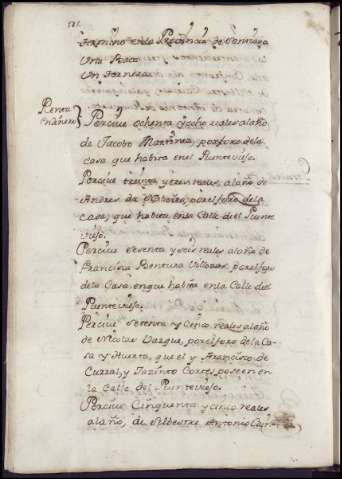 termino en la Provincia de Santiago
Una Posta
Un Jornal
Renta
en dinero
Percive ochenta y ocho reales al año
de Jacobo Martinez, por foro de la
casa que havita en el Puente viejo.
Percive treinta y tres reales, al año de
Andres de, por el foro de la
Casa, que havita en la Calle del Puente
viejo.
Percive sesenta y seis reales al año de
Francisca Ventura Villovar, por el foro
de la Casa en que havita en la Calle del
Puente viejo.
Percive setenta y cinco reales al año
de Nicolas Vargue, por el foro de la Ca-
sa y Huerto, que el y Francisco de
Curral, y Jazinto Cortes poseen en
la Calle del Puente viejo.
Percive Cinquenta y cinco reales
al año, de Silbestre Antonio